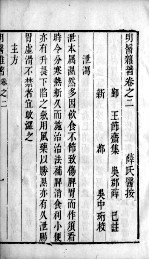 明醫雜著卷之二　薛氏醫按
鄞　王節齋集　吳郡薛　己註
新都　吳中珩校
泄瀉
泄本屬濕然多因飲食不節致傷脾胃而作須看
時令分寒熱新久而施治治法補脾消食利小便
亦有升提下陷之氣用風藥以勝濕亦有久泄腸
胃虛滑不禁者宜收澀之
主方
明醫雜著卷之二